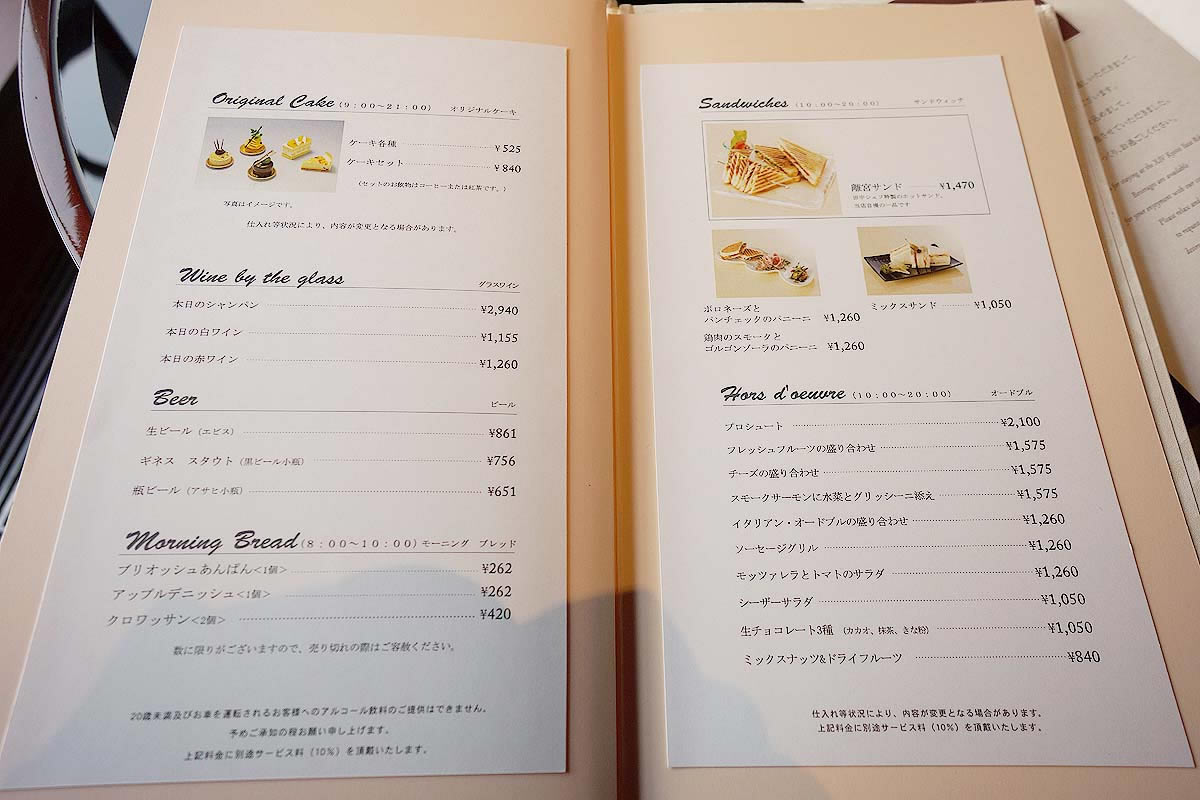 Original Cake (9:00~21:00) オリジナルケーキ
ケーキ各種 ¥525
ケーキセット ¥840
(セットのお飲物はコーヒーまたは紅茶です。)
写真はイメージです。
仕入れ等状況により、内容が変更となる場合があります。
Wine by the glass グラスワイン
本日のシャンパン ¥2,940
本日の白ワイン ¥1,155
本日の赤ワイン ¥1,260
Beer ビール
生ビール (エビス) ¥861
ギネス スタウト (黒ビール小瓶) ¥756
瓶ビール (アサヒ小瓶) ¥651
Morning Bread (8:00~10:00) モーニング ブレッド
ブリオッシュあんぱん<1個> ¥262
アップルデニッシュ<1個> ¥262
クロワッサン<2個> ¥420
数に限りがございますので、売り切れの際はご容赦ください。
20歳未満及びお車を運転されるお客様へのアルコール飲料のご提供はできません。
予めご承知の程お願い申し上げます。
上記料金に別途サービス料(10%)を頂戴いたします。
Sandwiches (10:00~20:00) サンドウィッチ
離宮サンド ¥1,470
田中シェフ特製のホットサンド。
当店自慢の一品です
ボロネーズと
パンチェックのパニーニ ¥1,260
ミックスサンド ¥1,050
鶏肉のスモークと
ゴルゴンゾーラのパニーニ ¥1,260
Hors d'oeuvre (10:00~20:00) オードブル
プロシュート ¥2,100
フレッシュフルーツの盛り合わせ ¥1,575
チーズの盛り合わせ ¥1,575
スモークサーモンに水菜とグリッシーニ添え ¥1,575
イタリアン・オードブルの盛り合わせ ¥1,260
ソーセージグリル ¥1,260
モッツァレラとトマトのサラダ ¥1,260
シーザーサラダ ¥1,050
生チョコレート3種 (カカオ、抹茶、きな粉) ¥1,050
ミックスナッツ&ドライフルーツ ¥840
仕入れ等状況により、内容が変更となる場合があります。
上記料金に別途サービス料(10%)を頂戴いたします。